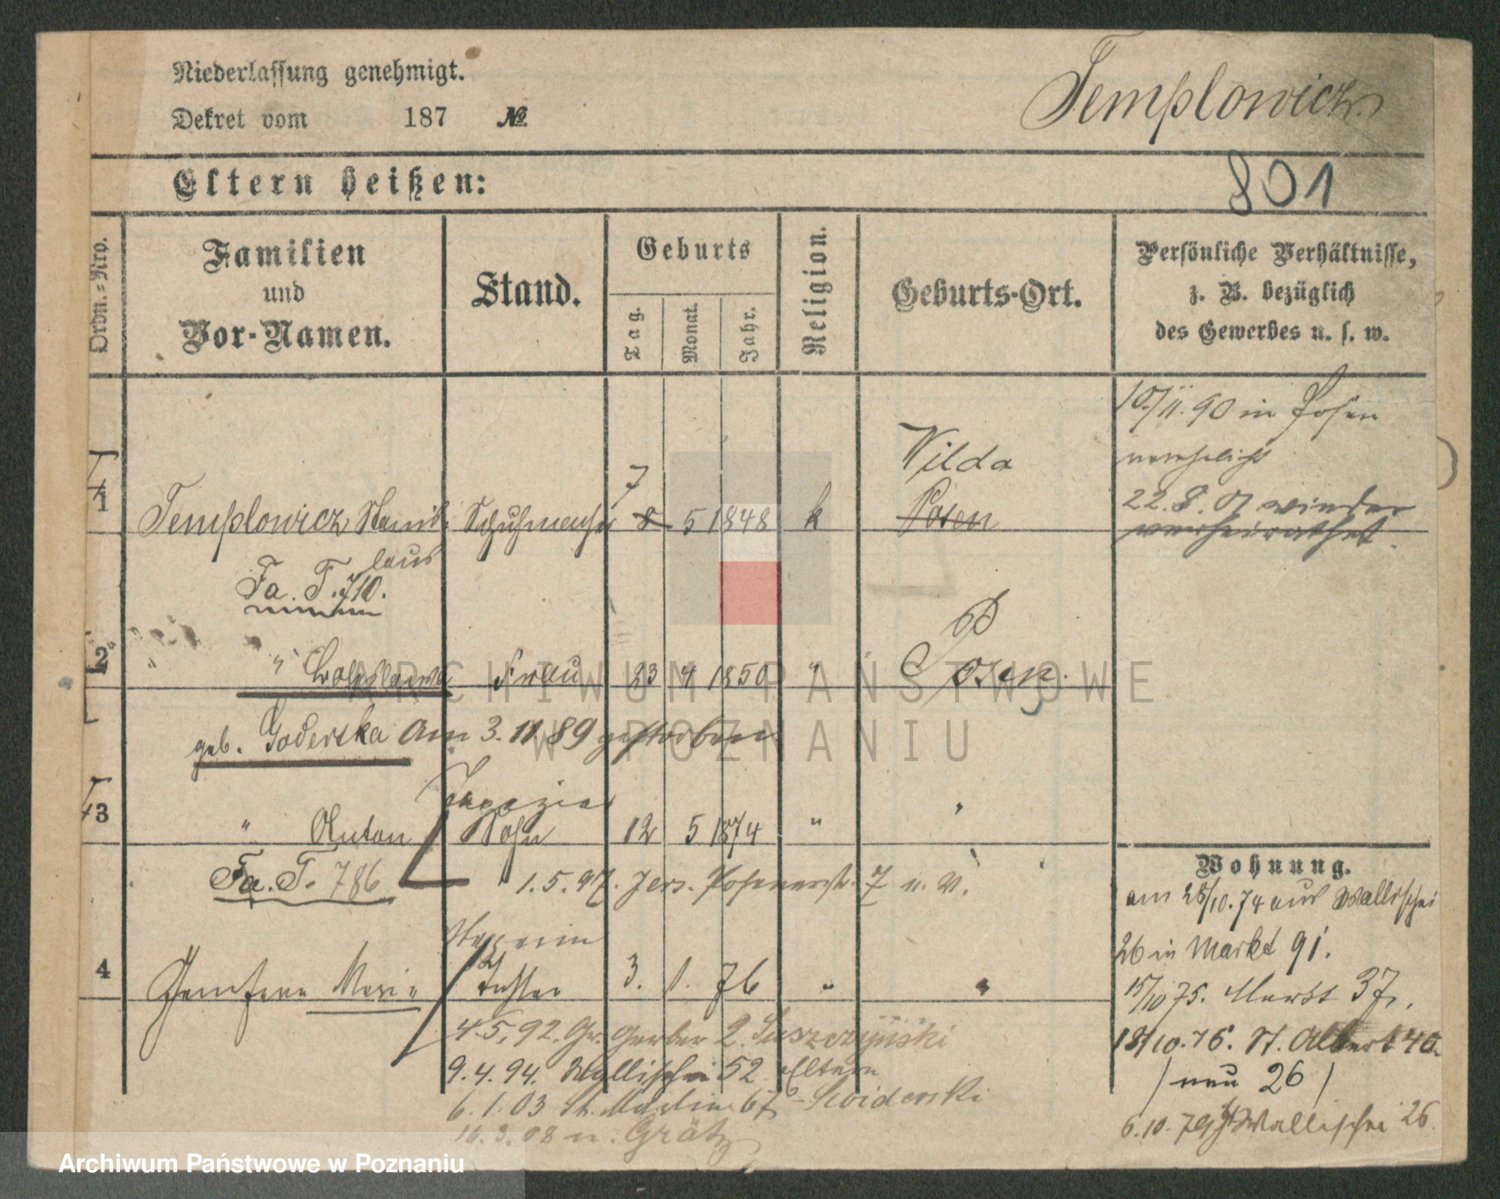 Niederlassung genehmigt.
Dekret vom 187 №
Templowicz
801
Eltern heißen:
Ordn.-Nro.
Familien
und
Vor-Namen.
Stand.
Geburts
Tag.
Monat.
Jahr.
Religion.
Geburts-Ort.
Persönliche Verhältnisse,
z. B. bezüglich
des Gewerbes u. s. w.
10/11.90 in Posen
verehelicht
22.8.01 wieder
verheirathet.
Wilda
7
1 Templowicz Stanis- Schuhmacher 8 5 1848 k Posen
laus
Fa. T. 710.
2 " Frau 23 4 1850 " Posen.
geb. Goderska Am 3.11.89 gestorben
3 " Anton Sohn 12 5 1874 "
Fa. T. 786 1.5.97. Jers. Posenerstr. 7 u. W.
4 Marie Tochter 3. 1. 76 " "
4.5.92. Gr. Gerber 2. Suszczyński
9.4.94. Wallischei 52 Eltern
6.1.03 St. Martin 67 - Swiderski
16.3.08 n. Grätz
Wohnung.
am 28/10.74 aus Wallischei
26 in Markt 91.
15/10 75. Markt 37,
18/10.76. St. Adalbert 40
(neu 26)
6.10.79 Wallischei 26.
ARCHIWUM PAŃSTWOWE
W POZNANIU
Archiwum Państwowe w Poznaniu